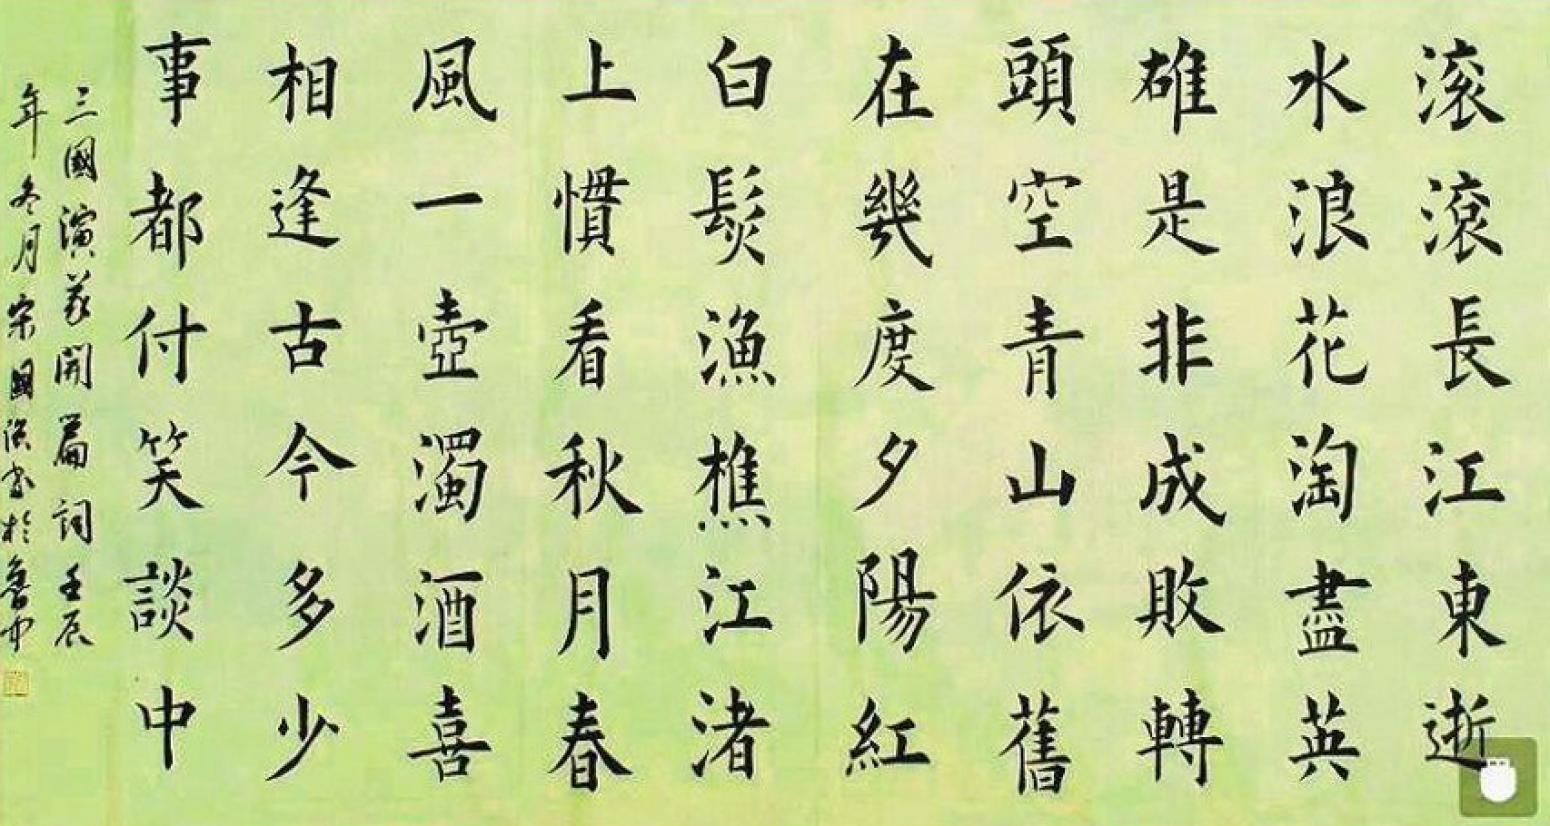 滚滾長江東逝
水浪花淘盡英
雄是非成敗轉
頭空青山依舊
在幾度夕陽紅
白髮漁樵江渚
上慣看秋月春
風一壺濁酒喜
相逢古今多少
事都付笑談中
三國演義開篇詞壬辰
年冬月宋國書於魯中